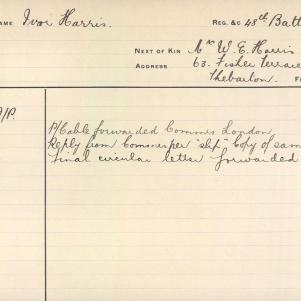 NAME Ivor Harris. REG. &C 48th Batt
NEXT OF KIN Mr W. E. Harris
ADDRESS 63. Fisher Terrace
Thebarton.
P/Cable forwarded Commrs London
Reply from Commrs per "slip" Copy of sam
Final circular letter forwarded